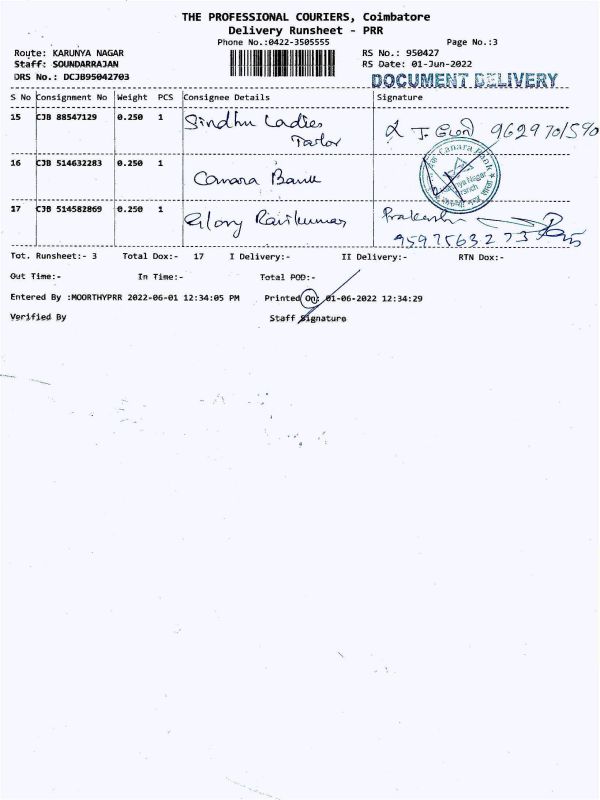 THE PROFESSIONAL COURIERS, Coimbatore
Delivery Runsheet - PRR
Phone No.:0422-3505555 Page No.:3
Route: KARUNYA NAGAR RS No.: 950427
Staff: SOUNDARRAJAN RS Date: 01-Jun-2022
DRS No.: DCJB95042703 DOCUMENT DELIVERY
S No Consignment No Weight PCS Consignee Details Signature
15 CJB 88547129 0.250 1 Sindhu Ladies
Tailor
9629701590
16 CJB 514632283 0.250 1 Canara Bank
Canara Bank
17 CJB 514582869 0.250 1 Glory Ravikumar Prakash
9597563273
Tot. Runsheet:- 3 Total Dox:- 17 I Delivery:- II Delivery:- RTN Dox:-
Out Time:- In Time:- Total POD:-
Entered By :MOORTHYPRR 2022-06-01 12:34:05 PM Printed On: 01-06-2022 12:34:29
Verified By Staff Signature